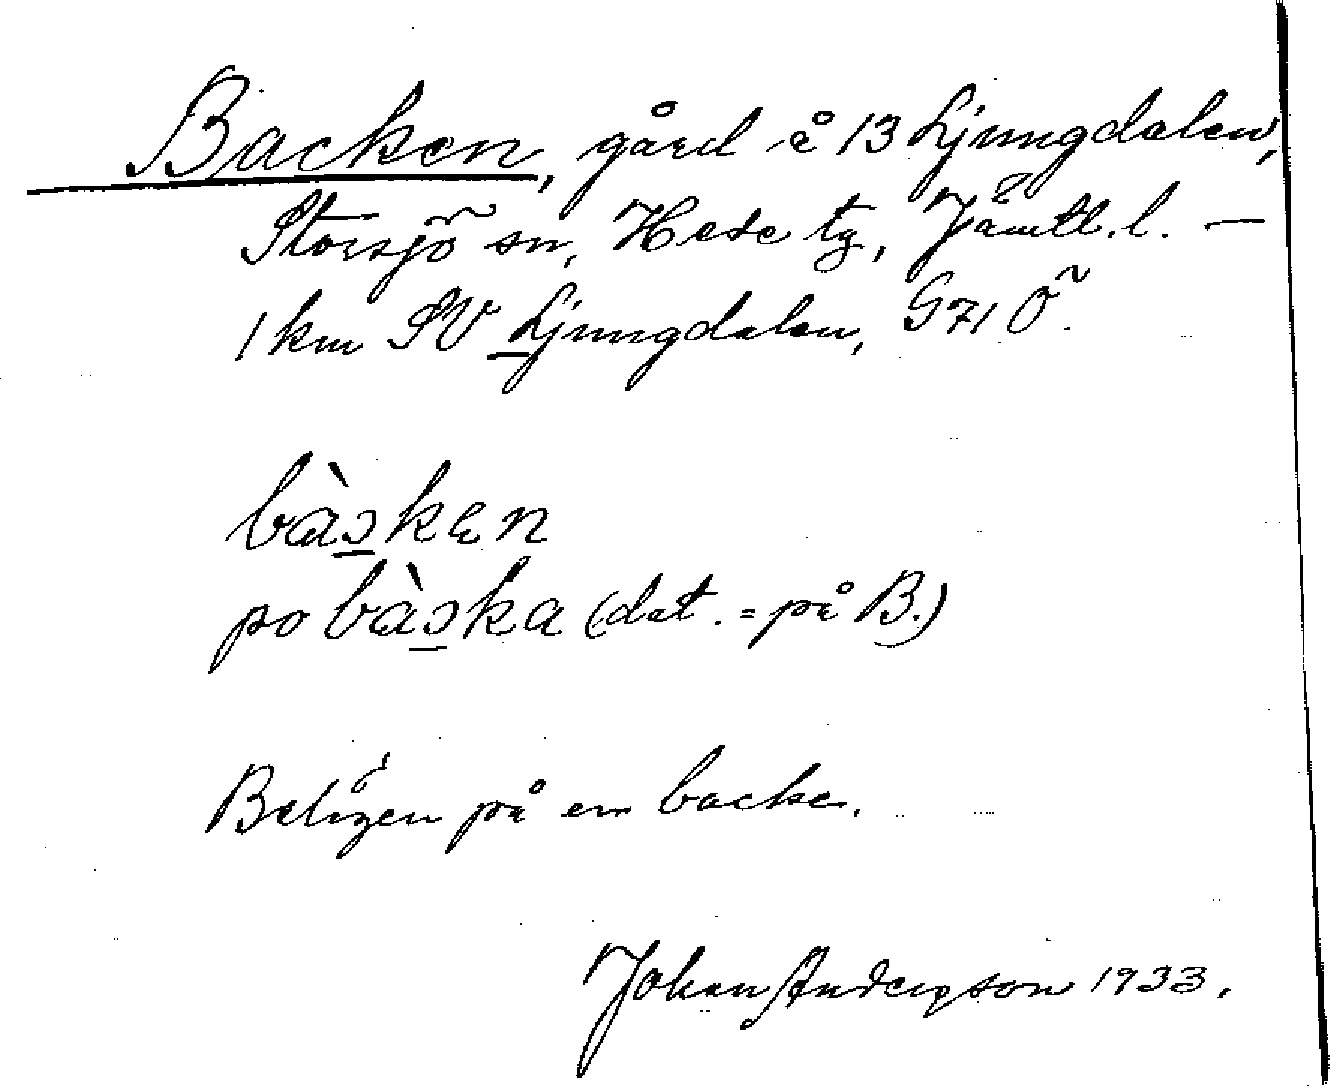 Backen, gård å 13 Ljungdalen,
Storsjö sn, Hede tg, Jämtl. l. —
1 km SV Ljungdalen, G71 Ö.
bàɔken
po bàɔka (dat. = på B.)
Belägen på en backe.
Johan Anderson 1933.